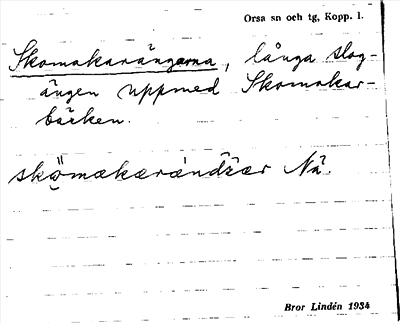 Orsa sn och tg, Kopp. l.
Skomakarängarna, långa slog-
ängen uppmed Skomakar-
bäcken.
Nä.
Bror Lindén 1934